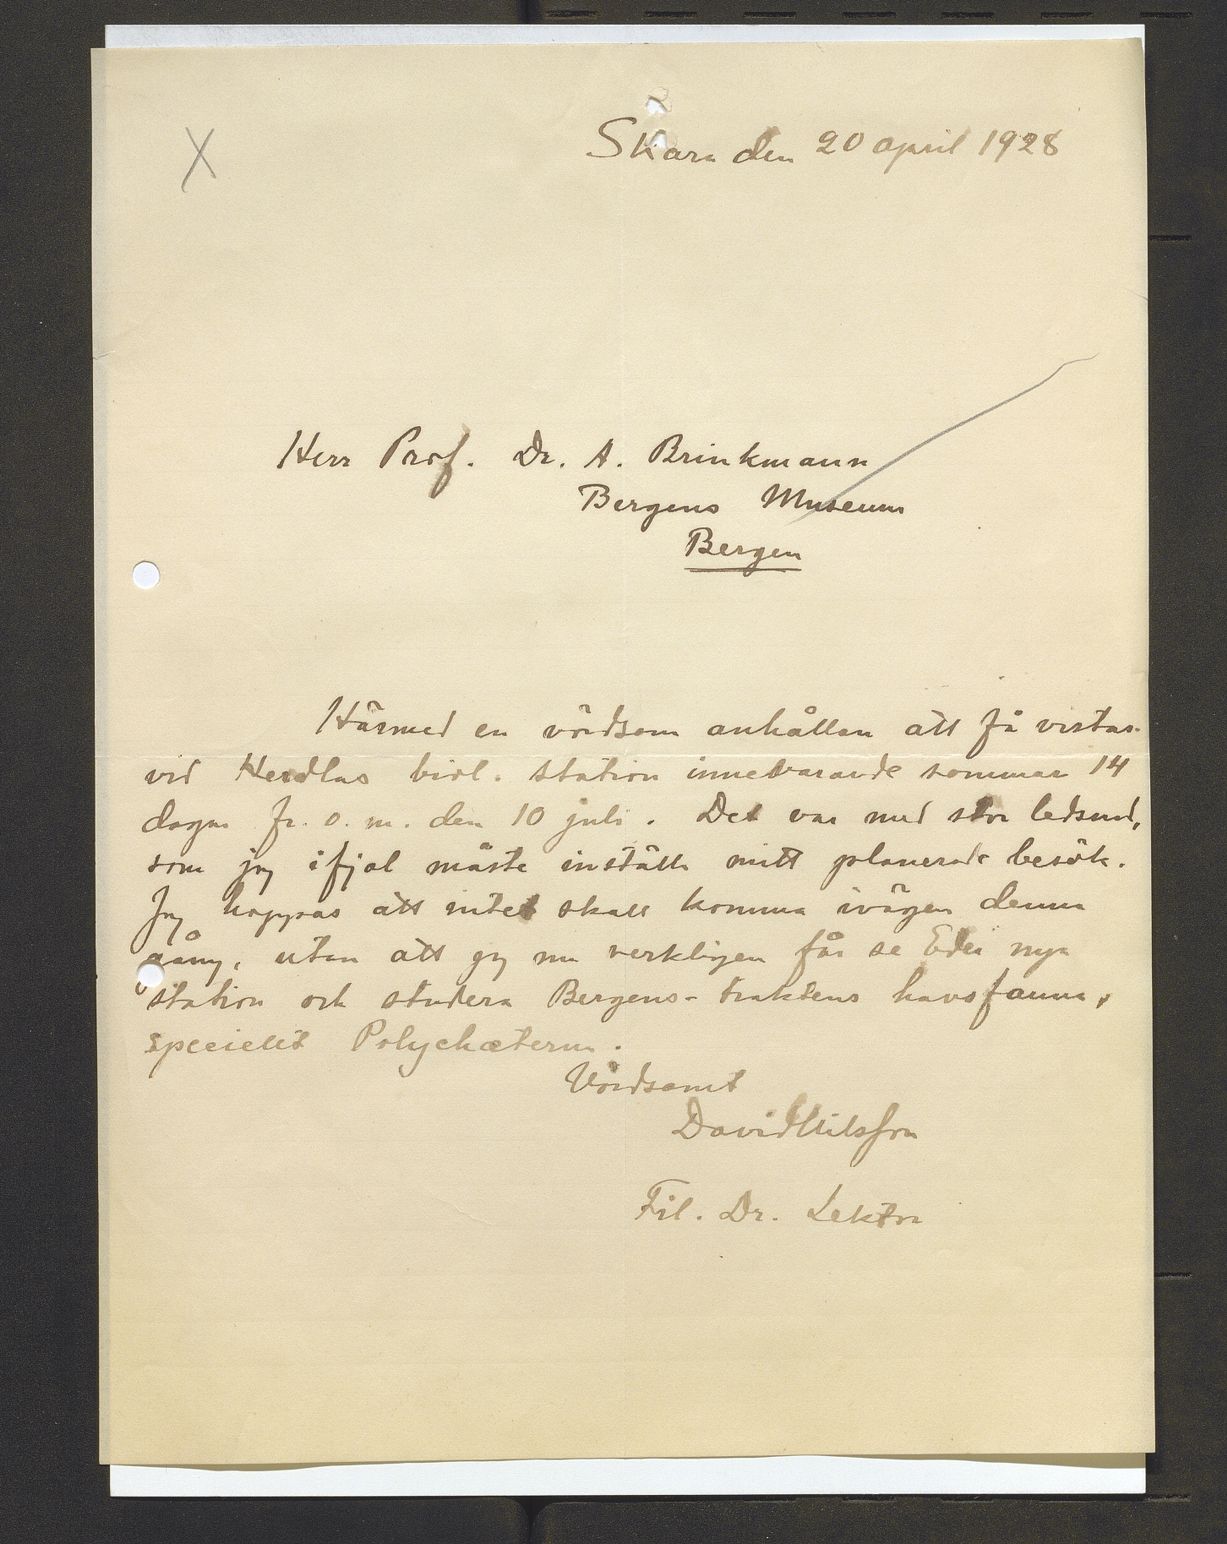 X
Skara den 20 april 1928
Herr Prof. Dr. A. Brinkmann
Bergens Museum
Bergen
Härmed en vördsam anhållan att få vistas
vid Herdlas biol. station innevarande sommar 14
dagar fr. o. m. den 10 juli. Det var med stor ledsnad,
som jag ifjol måste inställa mitt planerade besök.
Jag hoppas att intet skall komma ivägen denna
gång, utan att jag nu verkligen får se Eder nya
station och studera Bergens-traktens havsfauna,
speciellt Polychæterna.
Vördsamt
David Nilsson
Fil. Dr. Lektor